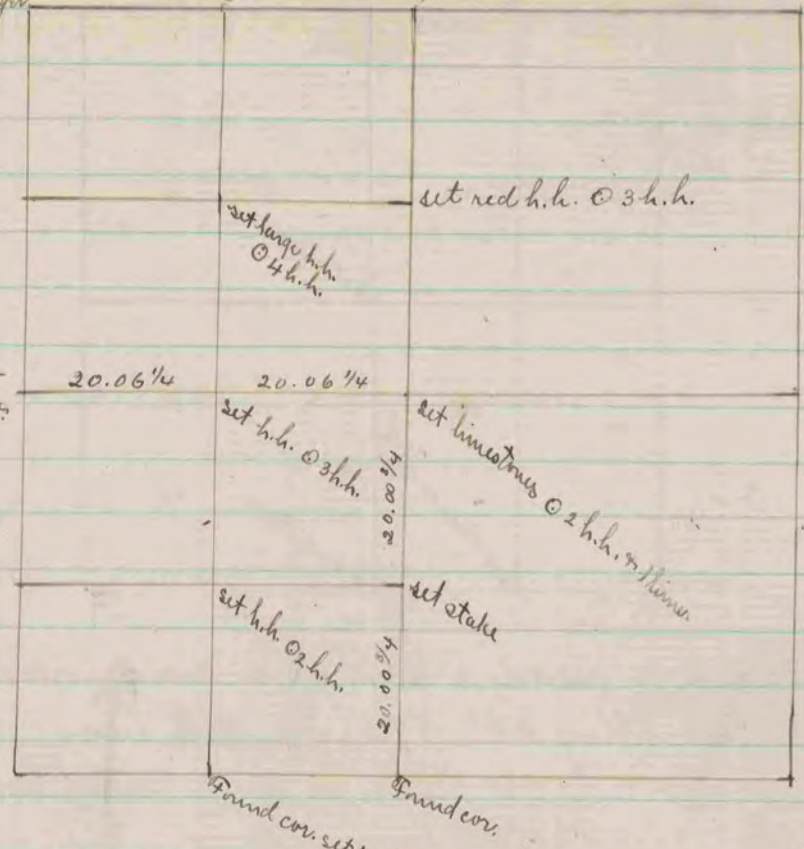 set red h.h. ⊙ 3 h.h.
set large h.h.
⊙ 4 h.h.
20.06 1/4 20.06 1/4
set h.h. ⊙ 3 h.h.
set limestones ⊙ 2 h.h. &
20.00 3/4
set h.h. ⊙ 2 h.h.
set stake
20.00 3/4
Found cor. set
Found cor.